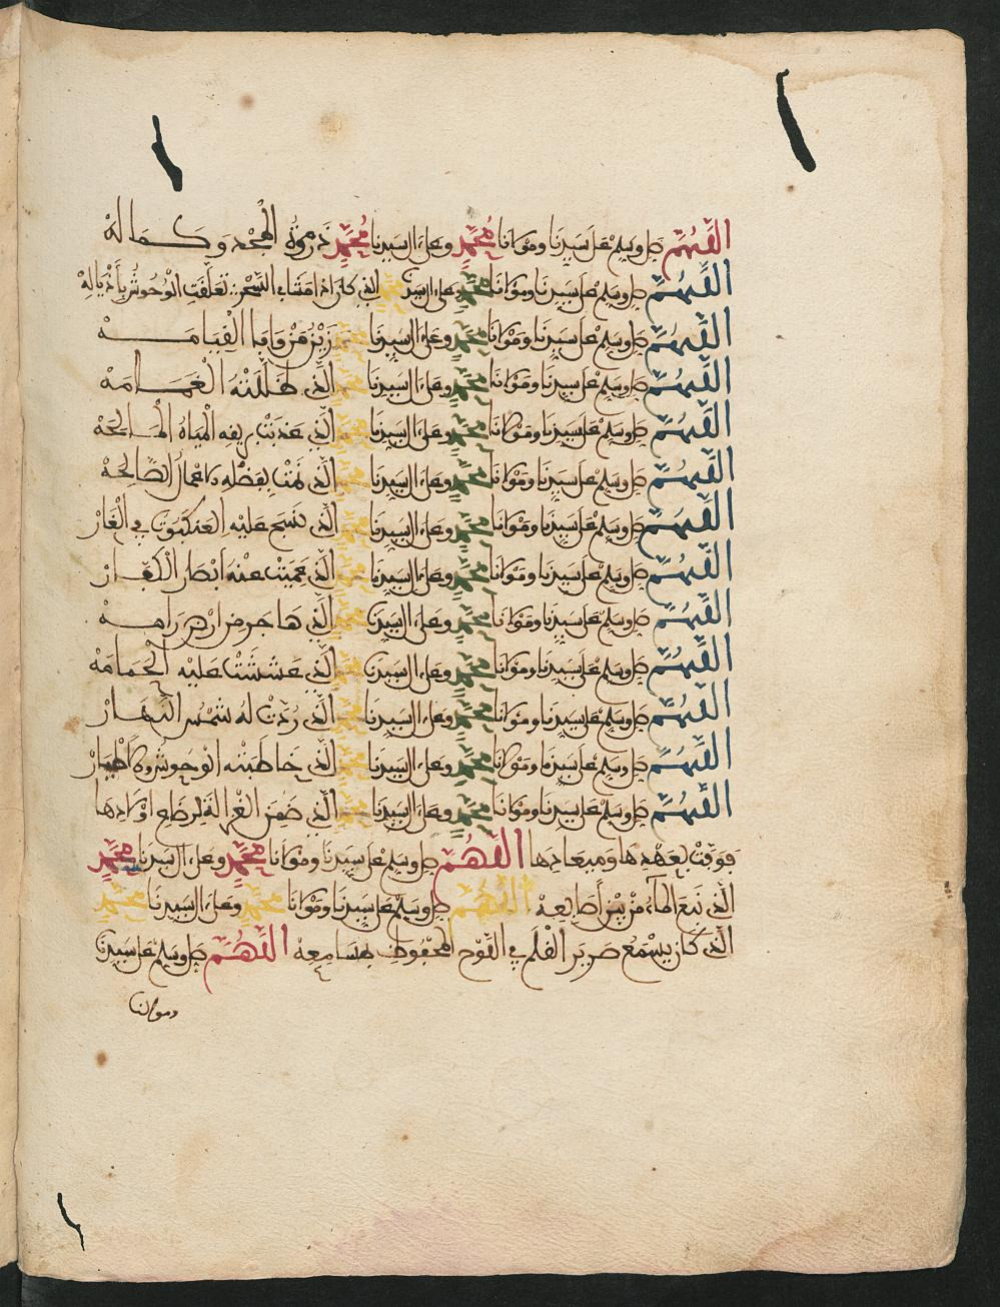 اللَّهُمَّ صل وسلم على سيدنا ومولانا محمد وعلى ءال سيدنا محمد ذروة المجد وكماله
اللهم صل وسلم على سيدنا ومولانا محمد وعلى ءال سيدنا محمد الذي كان اذا مشا في الشجر تعلقت الوحوش بأذياله
اللهم صل وسلم على سيدنا ومولانا محمد وعلى ءال سيدنا محمد زين من وافا القيامه
اللهم صل وسلم على سيدنا ومولانا محمد وعلى ءال سيدنا محمد الذي ظللته الغمامه
اللهم صل وسلم على سيدنا ومولانا محمد وعلى ءال سيدنا محمد الذي عذبت بريقه المياه المالحة
اللهم صل وسلم على سيدنا ومولانا محمد وعلى ءال سيدنا محمد الذي نمت بفضله الاعمال الصالحة
اللهم صل وسلم على سيدنا ومولانا محمد وعلى ءال سيدنا محمد الذي نسج عليه العنكبوت في الغار
اللهم صل وسلم على سيدنا ومولانا محمد وعلى ءال سيدنا محمد الذي عميت عنه ابصار الكفار
اللهم صل وسلم على سيدنا ومولانا محمد وعلى ءال سيدنا محمد الذي هاجر من ارض رامه
اللهم صل وسلم على سيدنا ومولانا محمد وعلى ءال سيدنا محمد الذي عششت عليه الحمامة
اللهم صل وسلم على سيدنا ومولانا محمد وعلى ءال سيدنا محمد الذي ردت له شمس النهار
اللهم صل وسلم على سيدنا ومولانا محمد وعلى ءال سيدنا محمد الذي خاطبته الوحوش والاطيار
اللهم صل وسلم على سيدنا ومولانا محمد وعلى ءال سيدنا محمد الذي ضمن الغزالة لرضاع اولادها
فوفت بعهدها وميعادها اللهم صل وسلم على سيدنا ومولانا محمد وعلى ءال سيدنا محمد
الذي نبع الماء من بين أصابعه اللهم صل وسلم على سيدنا ومولانا محمد وعلى ءال سيدنا محمد
الذي كان يسمع صرير القلم في اللوح المحفوظ بمسامعه اللهم صل وسلم على سيدنا
ومولانا